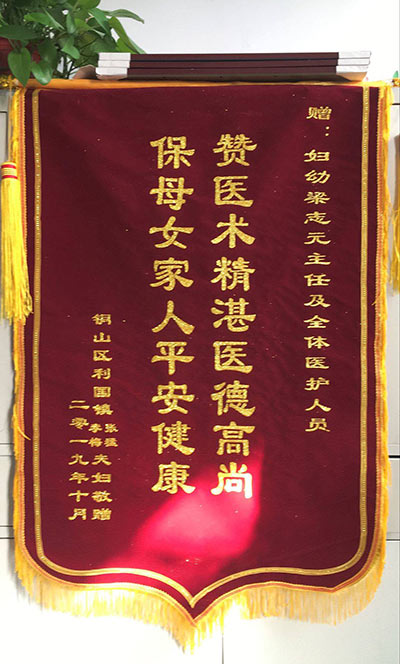 赠：妇幼梁志元主任及全体医护人员
赞医术精湛医德高尚
保母女家人平安健康
铜山区利国镇张猛李梅夫妇敬赠
二零一九年十月